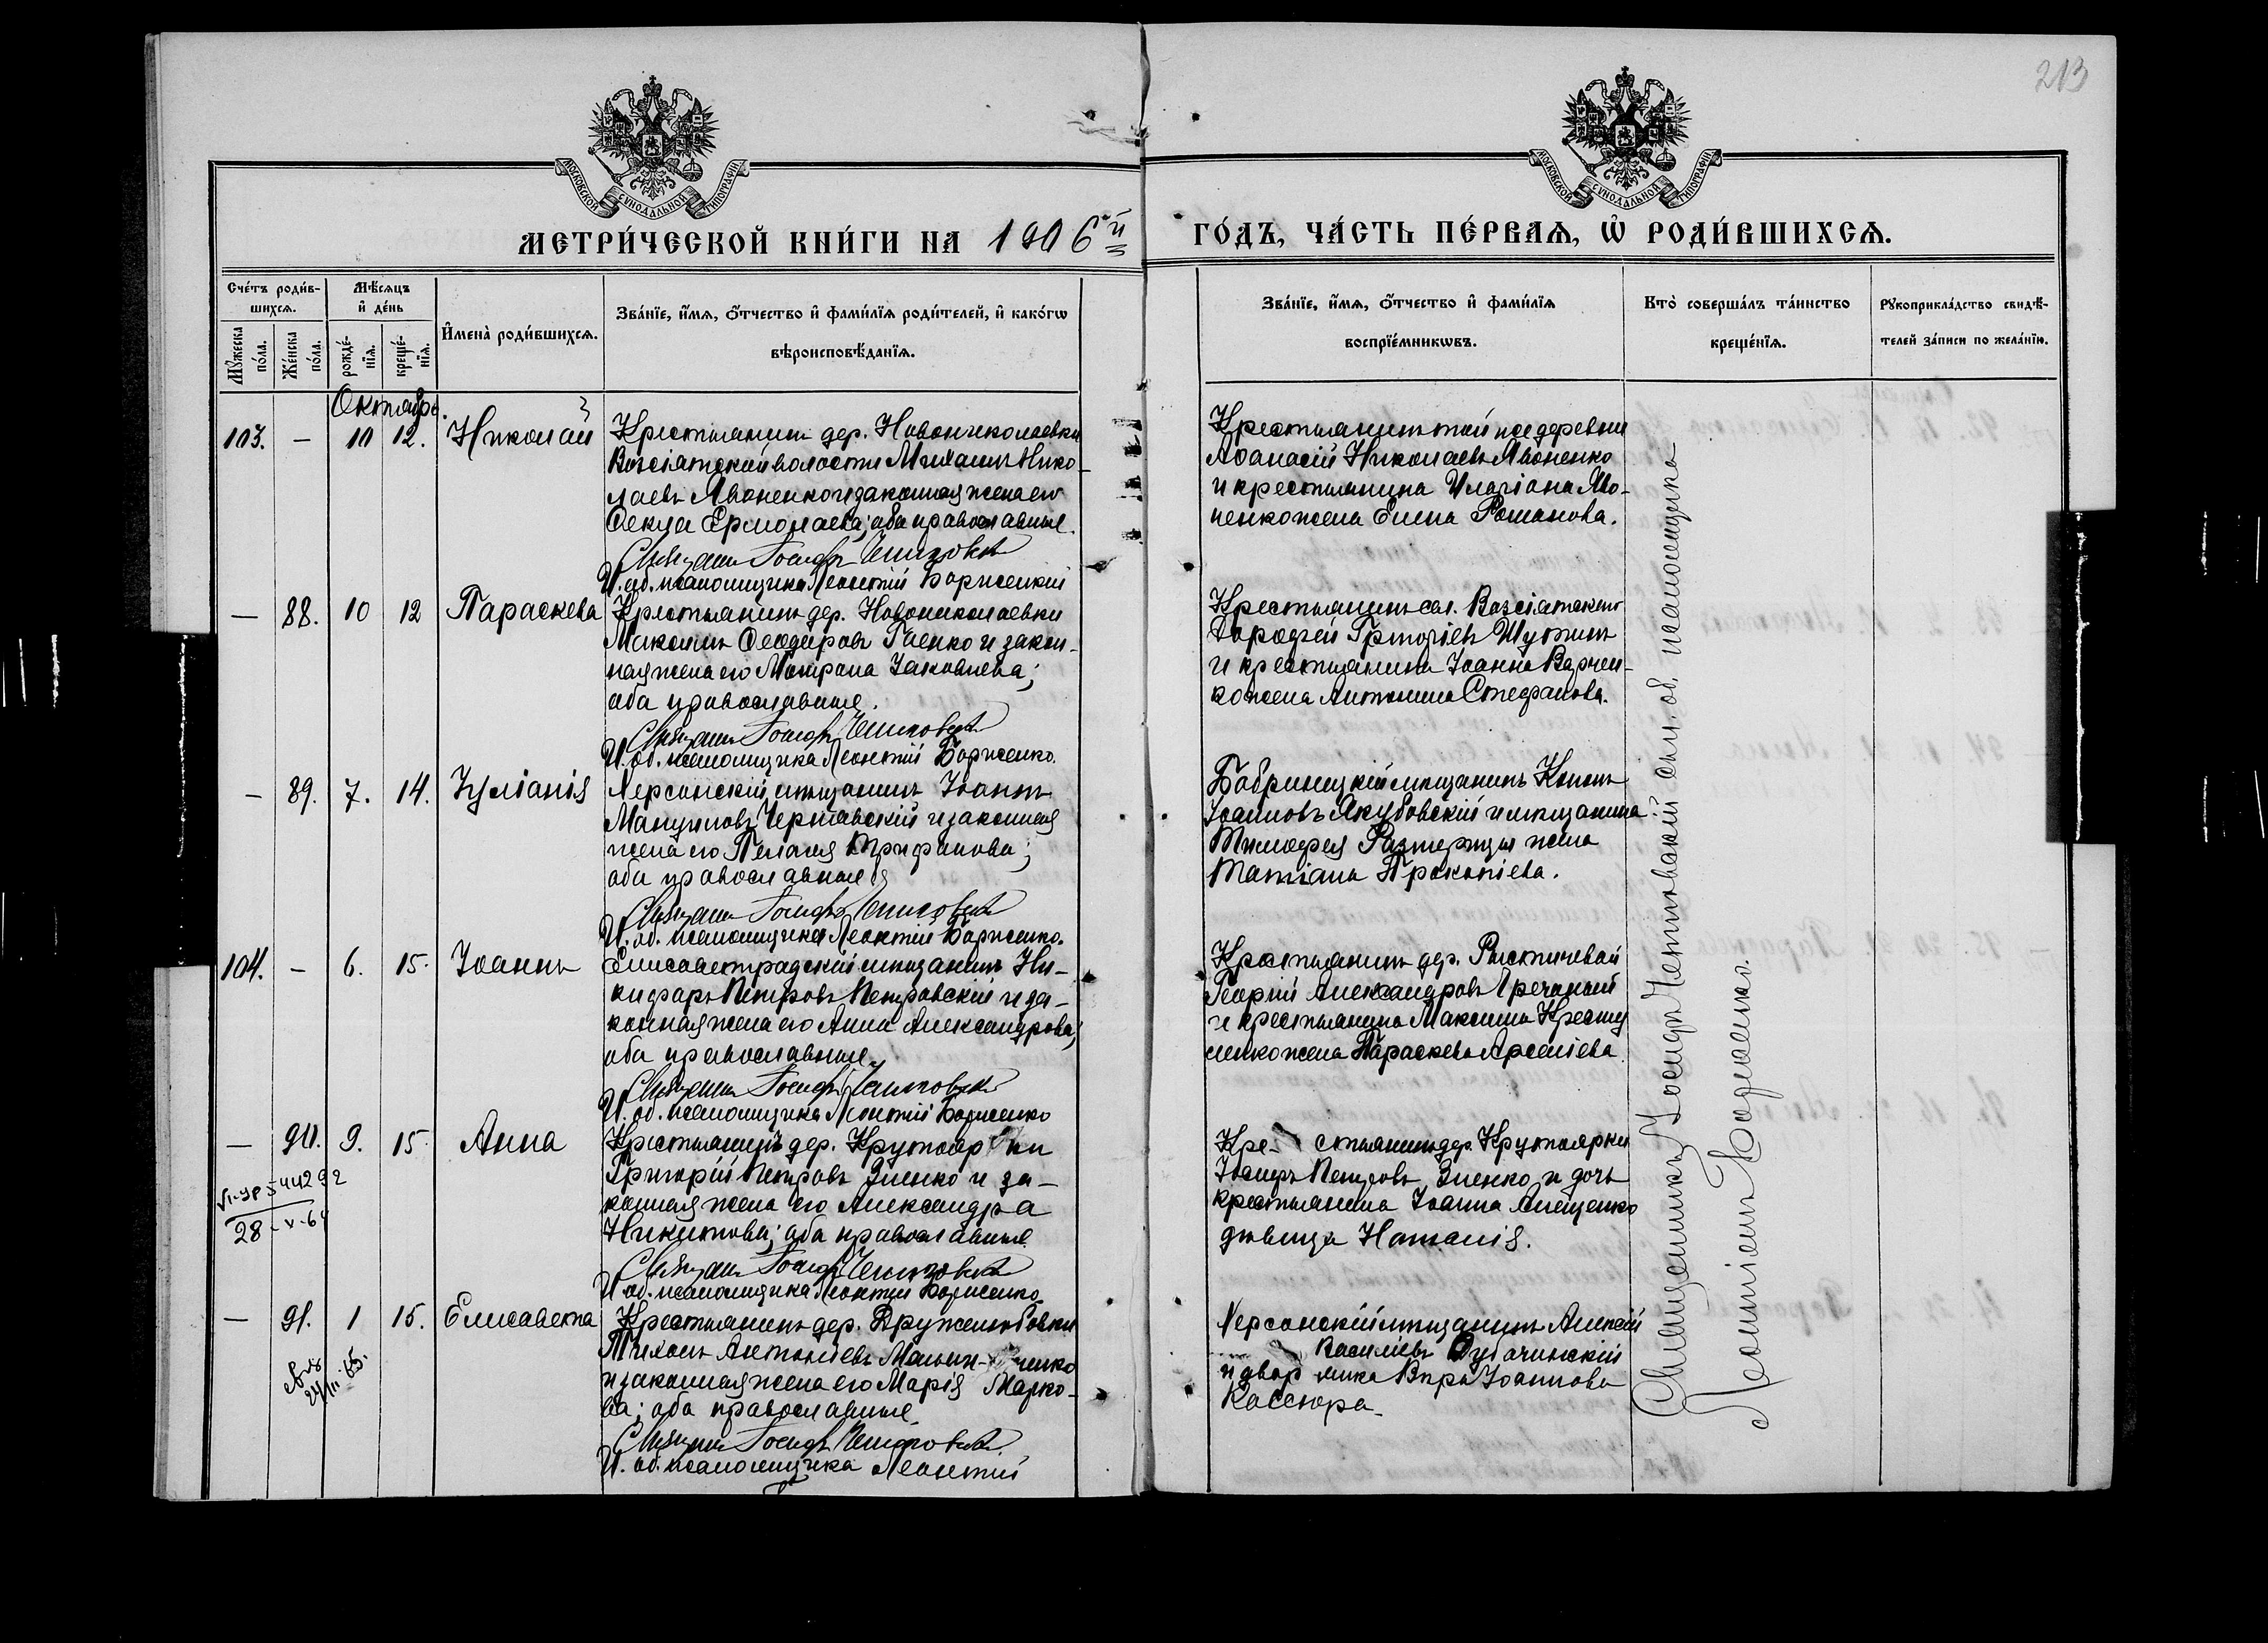 213
МОСКОВСКОЙ СѴНОДАЛЬНОЙ ТИПОГРАФІИ
МОСКОВСКОЙ СѴНОДАЛЬНОЙ ТИПОГРАФІИ
МЕТРИ́ЧЕСКОЙ КНИ́ГИ НА 1906й
ГО́ДЪ, ЧА́СТЬ ПЕ́РВАѦ, Ѡ҆ РОДИ́ВШИХСѦ.
Сче́тъ роди́в-
шихсѧ.
Мꙋ́жеска по́ла.
Же́нска по́ла.
Мѣ́сѧцъ
и҆ де́нь
рожде́-
нїѧ.
креще́-
нїѧ.
И҆мена̀ роди́вшихсѧ.
Зва́нїе, и҆́мѧ, ѻ҆́тчество и҆ фами́лїѧ роди́телей, и҆ како́гѡ
вѣроисповѣ́данїѧ.
Зва́нїе, и҆́мѧ, ѻ҆́тчество и҆ фами́лїѧ
воспрїе́мникѡвъ.
Кто̀ соверша́лъ та́инство
креще́нїѧ.
Рꙋкоприкла́дство свидѣ́-
телей за́писи по жела́нїю.
Октябрь.
103. — 10 12. Николай
Крестьянинъ дер. Новониколаевки
Возсіятской волости Михаилъ Нико-
лаевъ Явоненко и законная жена его
Ѳекла Ермолаева; оба православные.
Священникъ Іосифъ
И. об. псаломщика Леонтій Борисенко
Крестьянинъ той же деревни
Аѳанасій Николаевъ Явоненко
и крестьянина Иларіона Яво-
ненко жена Елена Романова.
— 88. 10 12 Параскева
Крестьянинъ дер. Новониколаевки
Максимъ Ѳеодоровъ Гаенко и закон-
ная жена его Матрона Іаковлева;
оба православные.
Священникъ Іосифъ
И. об. псаломщика Леонтій Борисенко.
Крестьянинъ сел. Возсіятскаго
Дороѳей Григоріевъ Шутинъ
и крестьянина Іоанна Варчен-
ко жена Антонина Стефанова.
— 89. 7. 14. Іуліанія
Херсонскій мѣщанинъ Іоаннъ
Мануиловъ Чернявскій и законная
жена его Пелагея Трифонова;
оба православные
Священникъ Іосифъ
И. об. псаломщика Леонтій Борисенко.
Бобринецкій мѣщанинъ Кононъ
Іоанновъ Якубовскій и мѣщанина
Тимоѳея жена
Татіана Прокопіева.
104. — 6. 15. Іоаннъ
Елисаветградскій мѣщанинъ Ни-
кифоръ Петровъ Петровскій и за-
конная жена его Анна Александрова;
оба православные.
Священникъ Іосифъ
И. об. псаломщика Леонтій Борисенко
Крестьянинъ дер.
Георгій Александровъ Гречаный
и крестьянина Максима
жена Параскева Арсеніева.
— 90. 9. 15. Анна
28-V-64
Крестьянинъ дер. Крутоярки
Григорій Петровъ Зленко и за-
конная жена его Александра
Никитова; оба православные.
Священникъ Іосифъ
И. об. псаломщика Леонтій Борисенко
Крестьянинъ дер. Крутоярки
Іосифъ Петровъ Зленко и дочь
крестьянина Іоанна Онищенко
дѣвица Наталія.
— 91. 1 15. Елисавета
24/III 65.
Крестьянинъ дер. Дружелюбовки
Тихонъ Антоніевъ
и законная жена его Марія Марко-
ва; оба православные.
Священникъ Іосифъ
И. об. псаломщика Леонтій
Херсонскій мѣщанинъ Алексій
Василіевъ Дубачинскій
и двор Вѣра Іоаннова
Кассюра.
Священникъ Іосифъ исп. об. псаломщика
Леонтій Борисенко.